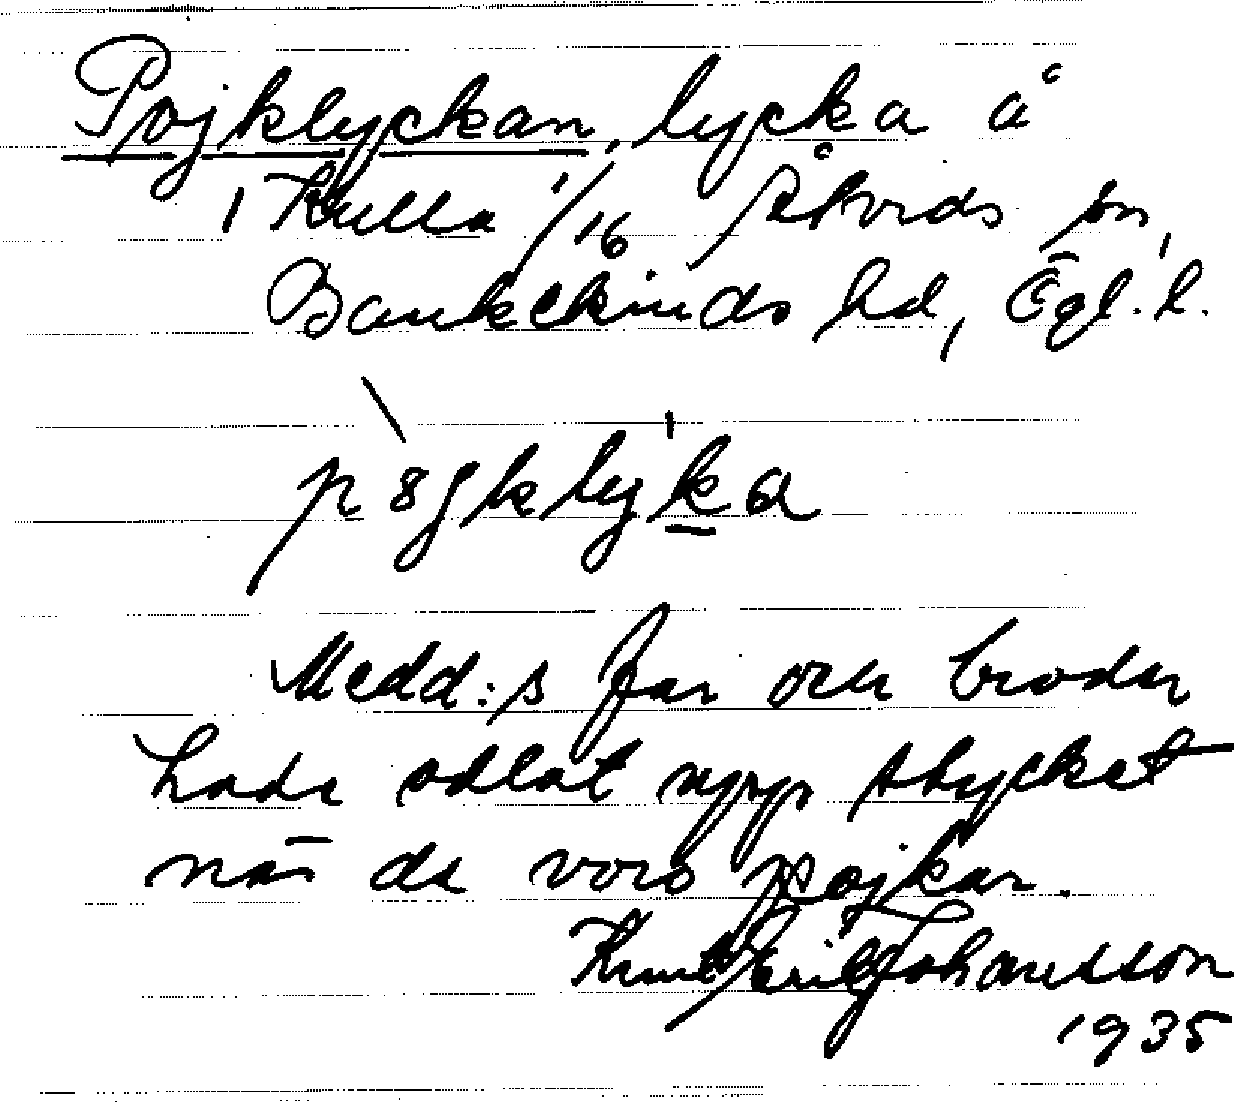 Pojklyckan, lycka å
1 Kulla 1/16 Åtvids sn,
Bankekinds hd, Ögl. l.
Medd:s far och broder
hade odlat upp stycket
när de voro pojkar.
Knut Erik Johansson
1935